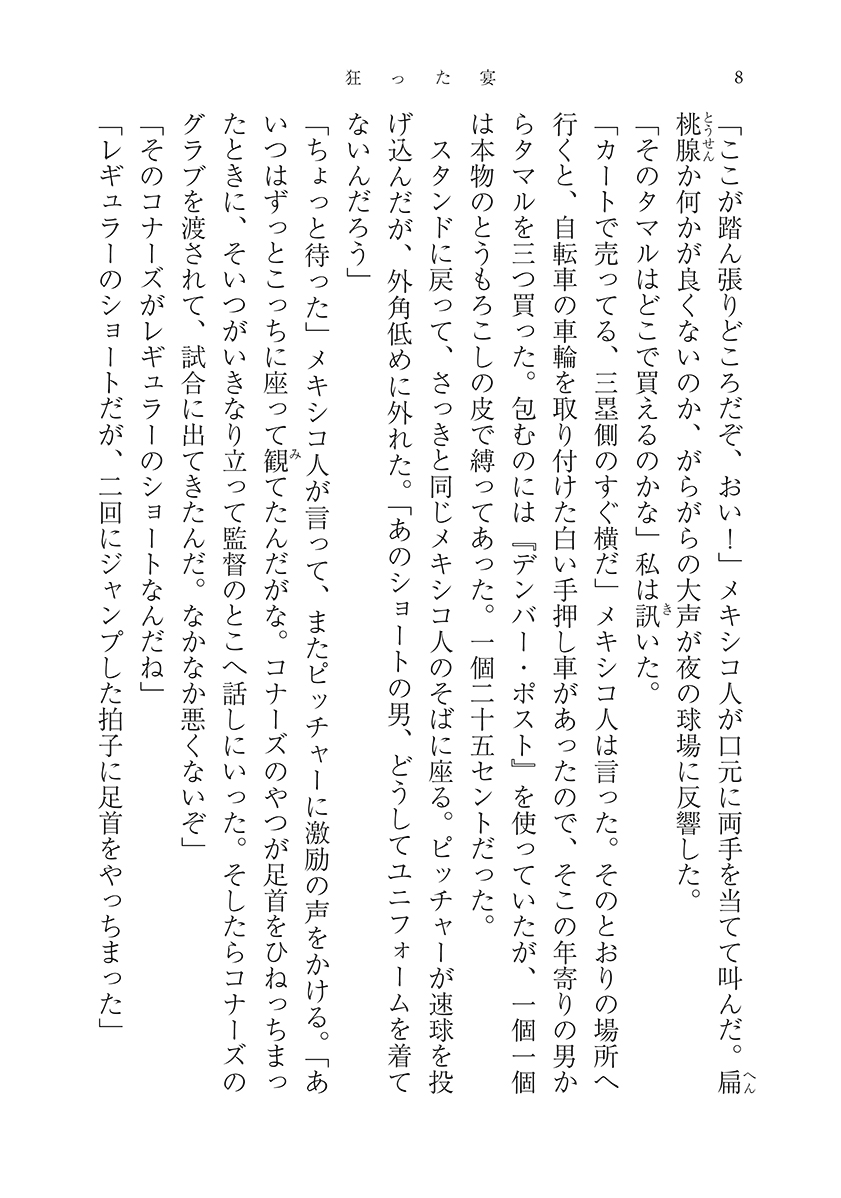 狂った宴
8
「ここが踏ん張りどころだぞ、おい！」メキシコ人が口元に両手を当てて叫んだ。扁
桃腺か何かが良くないのか、がらがらの大声が夜の球場に反響した。
「そのタマルはどこで買えるのかな」私は訊いた。
「カートで売ってる、三塁側のすぐ横だ」メキシコ人は言った。そのとおりの場所へ
行くと、自転車の車輪を取り付けた白い手押し車があったので、そこの年寄りの男か
らタマルを三つ買った。包むのには『デンバー・ポスト』を使っていたが、一個一個
は本物のとうもろこしの皮で縛ってあった。一個二十五セントだった。
スタンドに戻って、さっきと同じメキシコ人のそばに座る。ピッチャーが速球を投
げ込んだが、外角低めに外れた。「あのショートの男、どうしてユニフォームを着て
ないんだろう」
「ちょっと待った」メキシコ人が言って、またピッチャーに激励の声をかける。「あ
いつはずっとこっちに座って観てたんだがな。コナーズのやつが足首をひねっちまっ
たときに、そいつがいきなり立って監督のとこへ話しにいった。そしたらコナーズの
グラブを渡されて、試合に出てきたんだ。なかなか悪くないぞ」
「そのコナーズがレギュラーのショートなんだね」
「レギュラーのショートだが、二回にジャンプした拍子に足首をやっちまった」